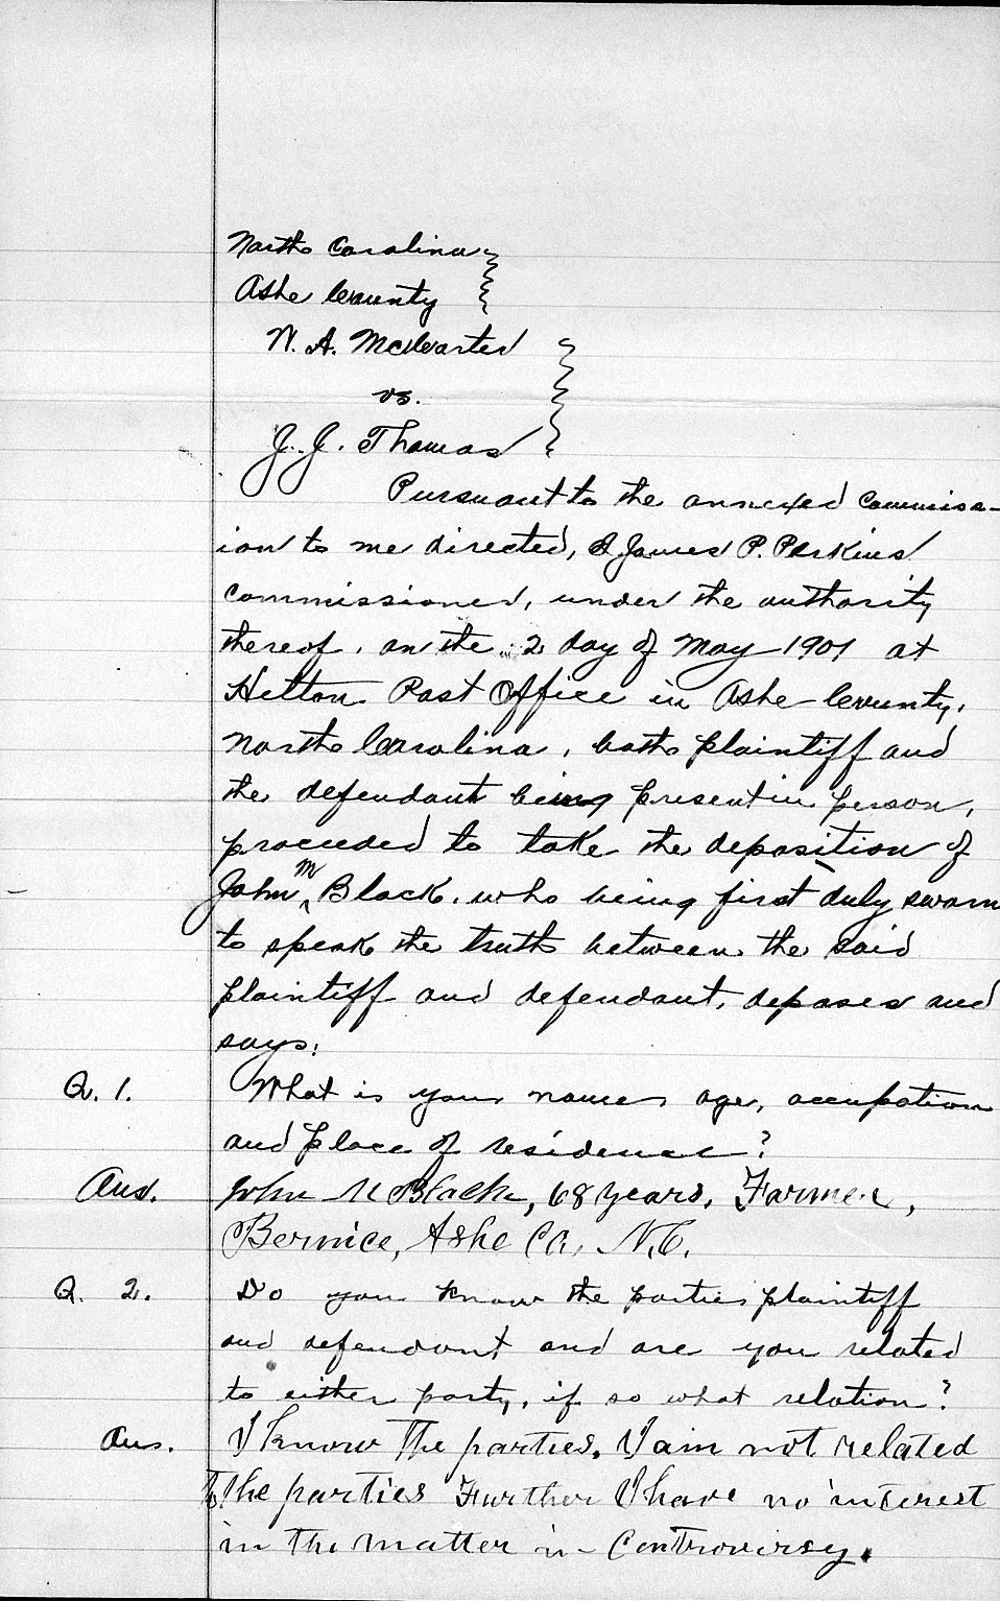 North Carolina
Ashe County
W. A. McCarter
vs.
J. J. Thomas
Pursuant to the annexed commiss-
ion to me directed, I James P. Perkins
commissioner, under the authority
thereof, on the 2 day of May 1901 at
Helton Post Office in Ashe County,
North Carolina, both plaintiff and
the defendant being present in person,
proceeded to take the deposition of
John M Black. who being first duly sworn
to speak the truth between the said
plaintiff and defendant, deposes and
says:
Q. 1. What is your name, age, occupation
and place of residence?
Ans. John M Black, 68 years, Farmer,
Bernice, Ashe Co, N.C.
Q. 2. Do you know the parties plaintiff
and defendant and are you related
to either party, if so what relation?
Ans. I know the parties. I am not related
to the parties Further I have no interest
in the matter in Controversy.